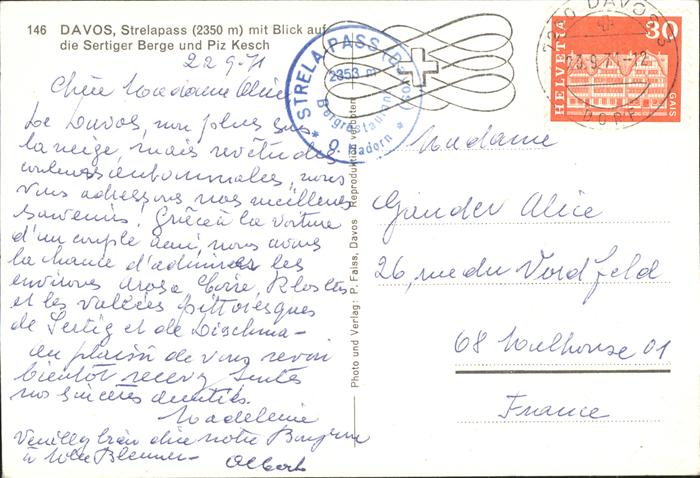 146 DAVOS, Strelapass (2350 m) mit Blick auf
die Sertiger Berge und Piz Kesch
22 9. 71
Chère Madame Alice
De Davos, non plus sous
la neige, mais revêtu des
couleurs automnales, nous
vous adressons nos meilleurs
souvenirs! Grâce à la voiture
d'un couple ami, nous avons
la chance d'admirer les
environs Arosa Klosters
et les vallées pittoresques
de Sertig et de Dischma-
au plaisir de vous revoir
bientôt recevez toutes
nos sincères amitiés.
Madeleine
Veuillez bien dire notre Bonjour
à Mme
Albert
STRELA-PASS
2353 m
Bergrestaurant
O. Hadorn
Photo und Verlag: P. Faiss, Davos Reproduktion verboten
DAVOS
23.9.71-12
DORF
HELVETIA
30
GAIS
Madame
Gander Alice
26, rue du Nordfeld
68 Mulhouse 01
France